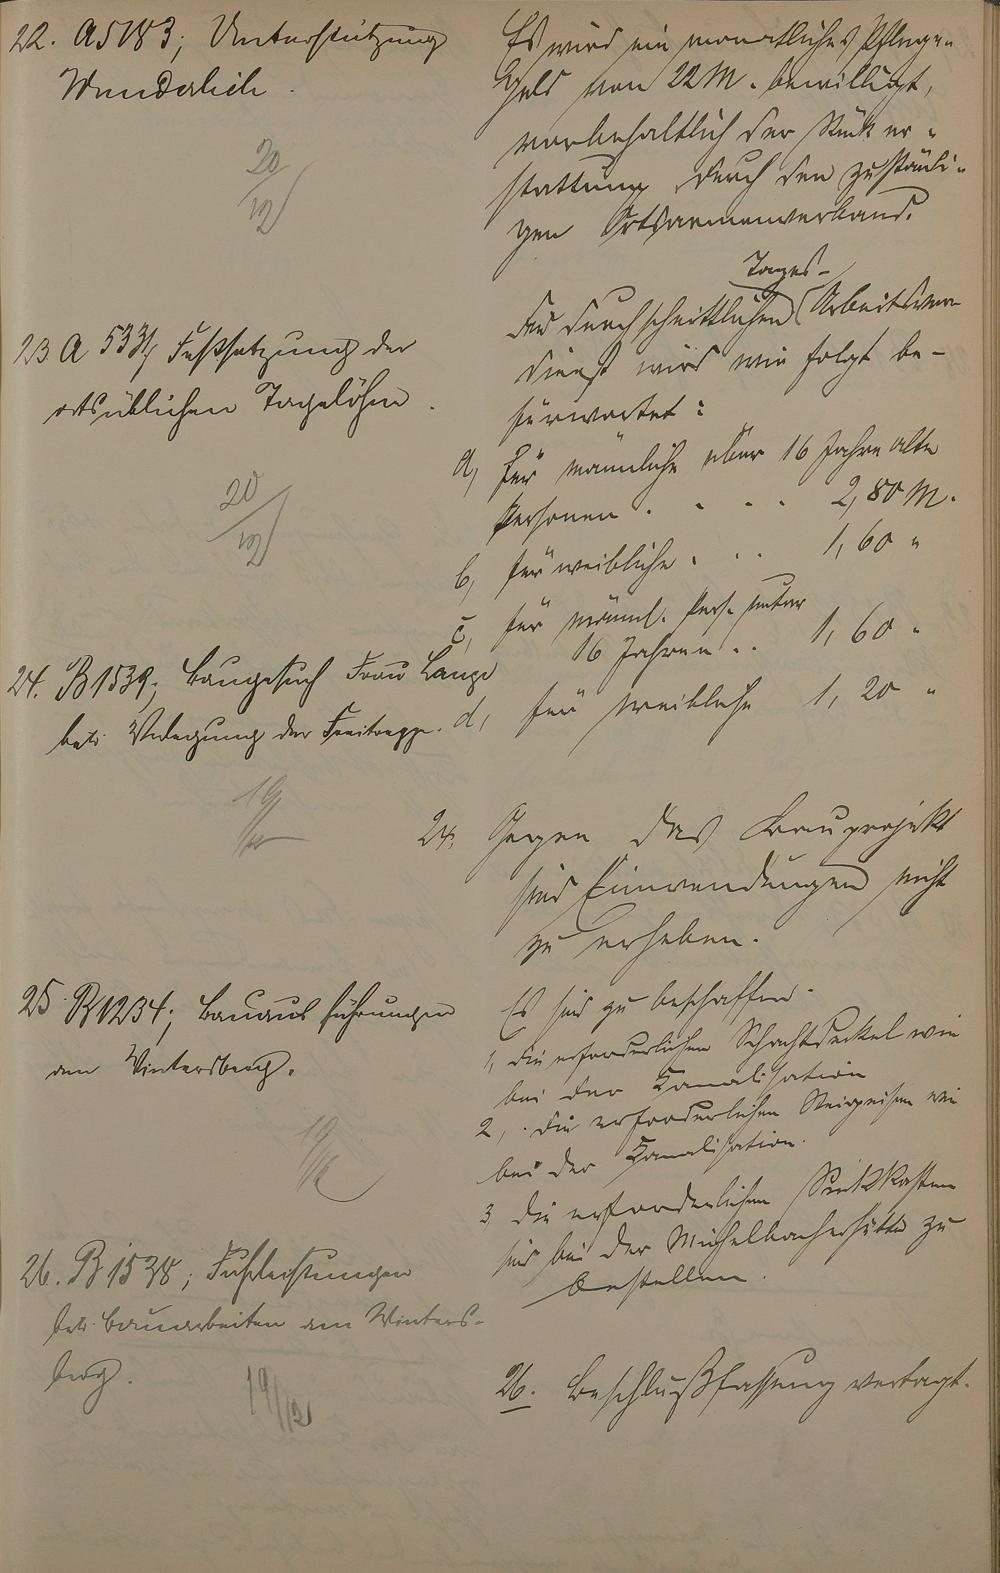 22. A 5183; Unterstützung
Wunderlich.
20/12
Es wird ein monatliches Pflege-
geld von 22 M. bewilligt,
vorbehaltlich der Rücker-
stattung durch den zuständi-
gen Ortsarmenverband.
23 A 5331; Festsetzung der
ortsüblichen Tagelöhne.
20/12
Tages-
Der durchschnittlichen Arbeitsver-
dienst wird wie folgt be-
fürwortet:
a, für männliche über 16 Jahre alte
Personen . . . . 2,80 M.
b, für weibliche . . . 1,60 "
c, für männl. Pers. unter
16 Jahren . . 1,60 "
d, für weibliche 1,20 "
24. B 1539; Baugesuch Frau Lange
betr. Verlegung der Freitreppe.
19/12
24. Gegen das Bauprojekt
sind Einwendungen nicht
zu erheben.
25 B 1234; Bauausführungen
am Wintersberg.
19/12
Es sind zu beschaffen.
1, die erforderlichen Schachtdeckel wie
bei der Kanalisation
2, die erforderlichen Steigeisen wie
bei der Kanalisation.
3 die erforderlichen Sinkkasten
sind bei der Michelbacherhütte zu
bestellen.
26. B 1538; Fuhrleistungen
betr. Bauarbeiten am Winters-
berg.
19/12
26. Beschlußfassung vertagt.